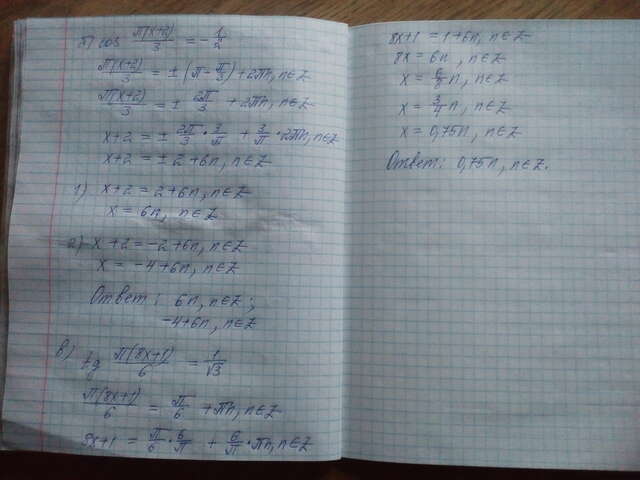 б) cos π(x+2)/3 = -1/2
π(x+2)/3 = ± (π - π/3) + 2πn, n∈Z
π(x+2)/3 = ± 2π/3 + 2πn, n∈Z
x+2 = ± 2π/3 · 3/π + 3/π · 2πn, n∈Z
x+2 = ± 2 + 6n, n∈Z
1) x+2 = 2+6n, n∈Z
x = 6n, n∈Z
2) x+2 = -2+6n, n∈Z
x = -4+6n, n∈Z
Ответ: 6n, n∈Z;
-4+6n, n∈Z
в) tg π(8x+1)/6 = 1/√3
π(8x+1)/6 = π/6 + πn, n∈Z
8x+1 = π/6 · 6/π + 6/π · πn, n∈Z
8x+1 = 1+6n, n∈Z
8x = 6n, n∈Z
x = 6/8 n, n∈Z
x = 3/4 n, n∈Z
x = 0,75n, n∈Z
Ответ: 0,75n, n∈Z.